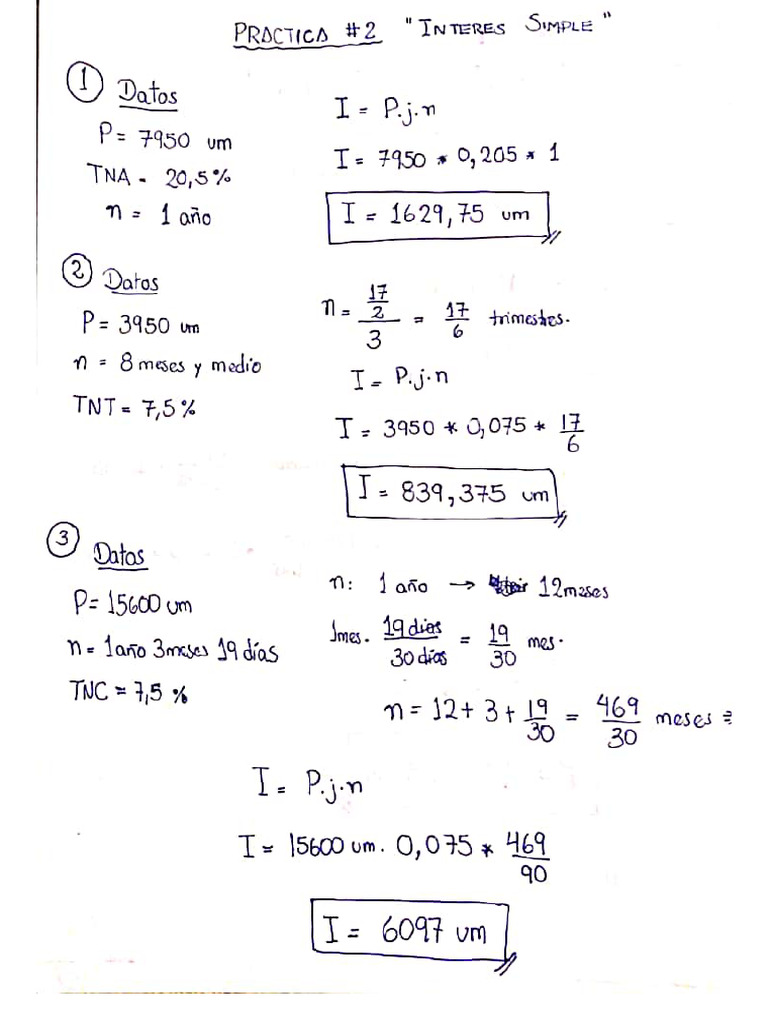 PRACTICA #2 "INTERES SIMPLE"
① Datos
P = 7950 um
TNA - 20,5%
n = 1 año
I = P.j.n
I = 7950 * 0,205 * 1
I = 1629,75 um
② Datos
P = 3950 um
n = 8 meses y medio
TNT = 7,5%
n = 17/2 / 3 = 17/6 trimestres.
I = P.j.n
I = 3950 * 0,075 * 17/6
I = 839,375 um
③ Datos
P = 15600 um
n = 1 año 3 meses 19 días
TNC = 7,5 %
n: 1 año → 12 meses
1mes. 19 dias/30 días = 19/30 mes.
n = 12 + 3 + 19/30 = 469/30 meses
I = P.j.n
I = 15600 um. 0,075 * 469/90
I = 6097 um